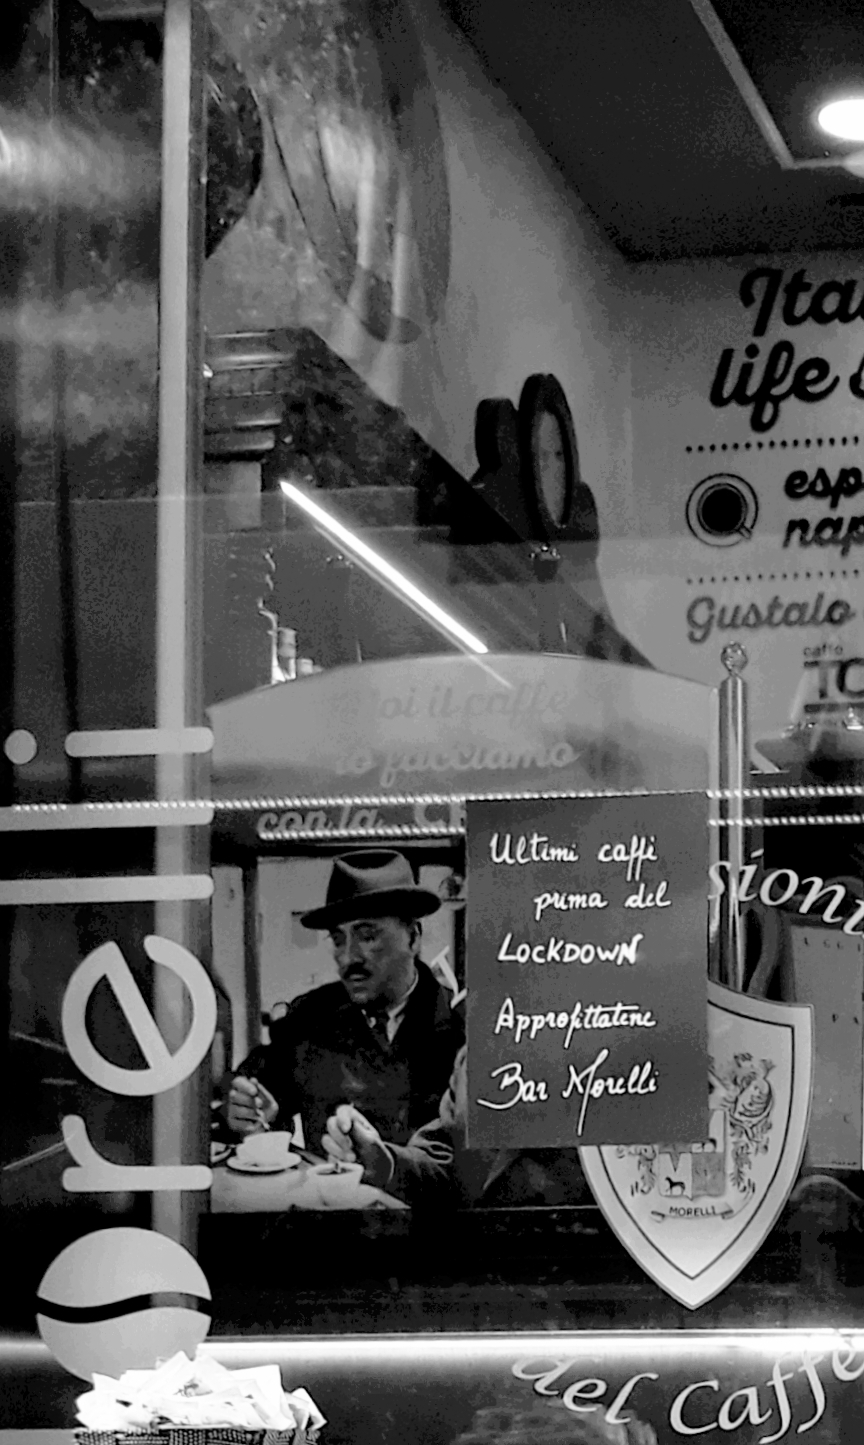 Ita
life
esp
nap
Gustalo
caffè
TO
oi il caffè
lo facciamo
con la
Ultimi caffè
prima del
LOCKDOWN
Approfittatene
Bar Morelli
sioni
MORELLI
del Caffè
orelli